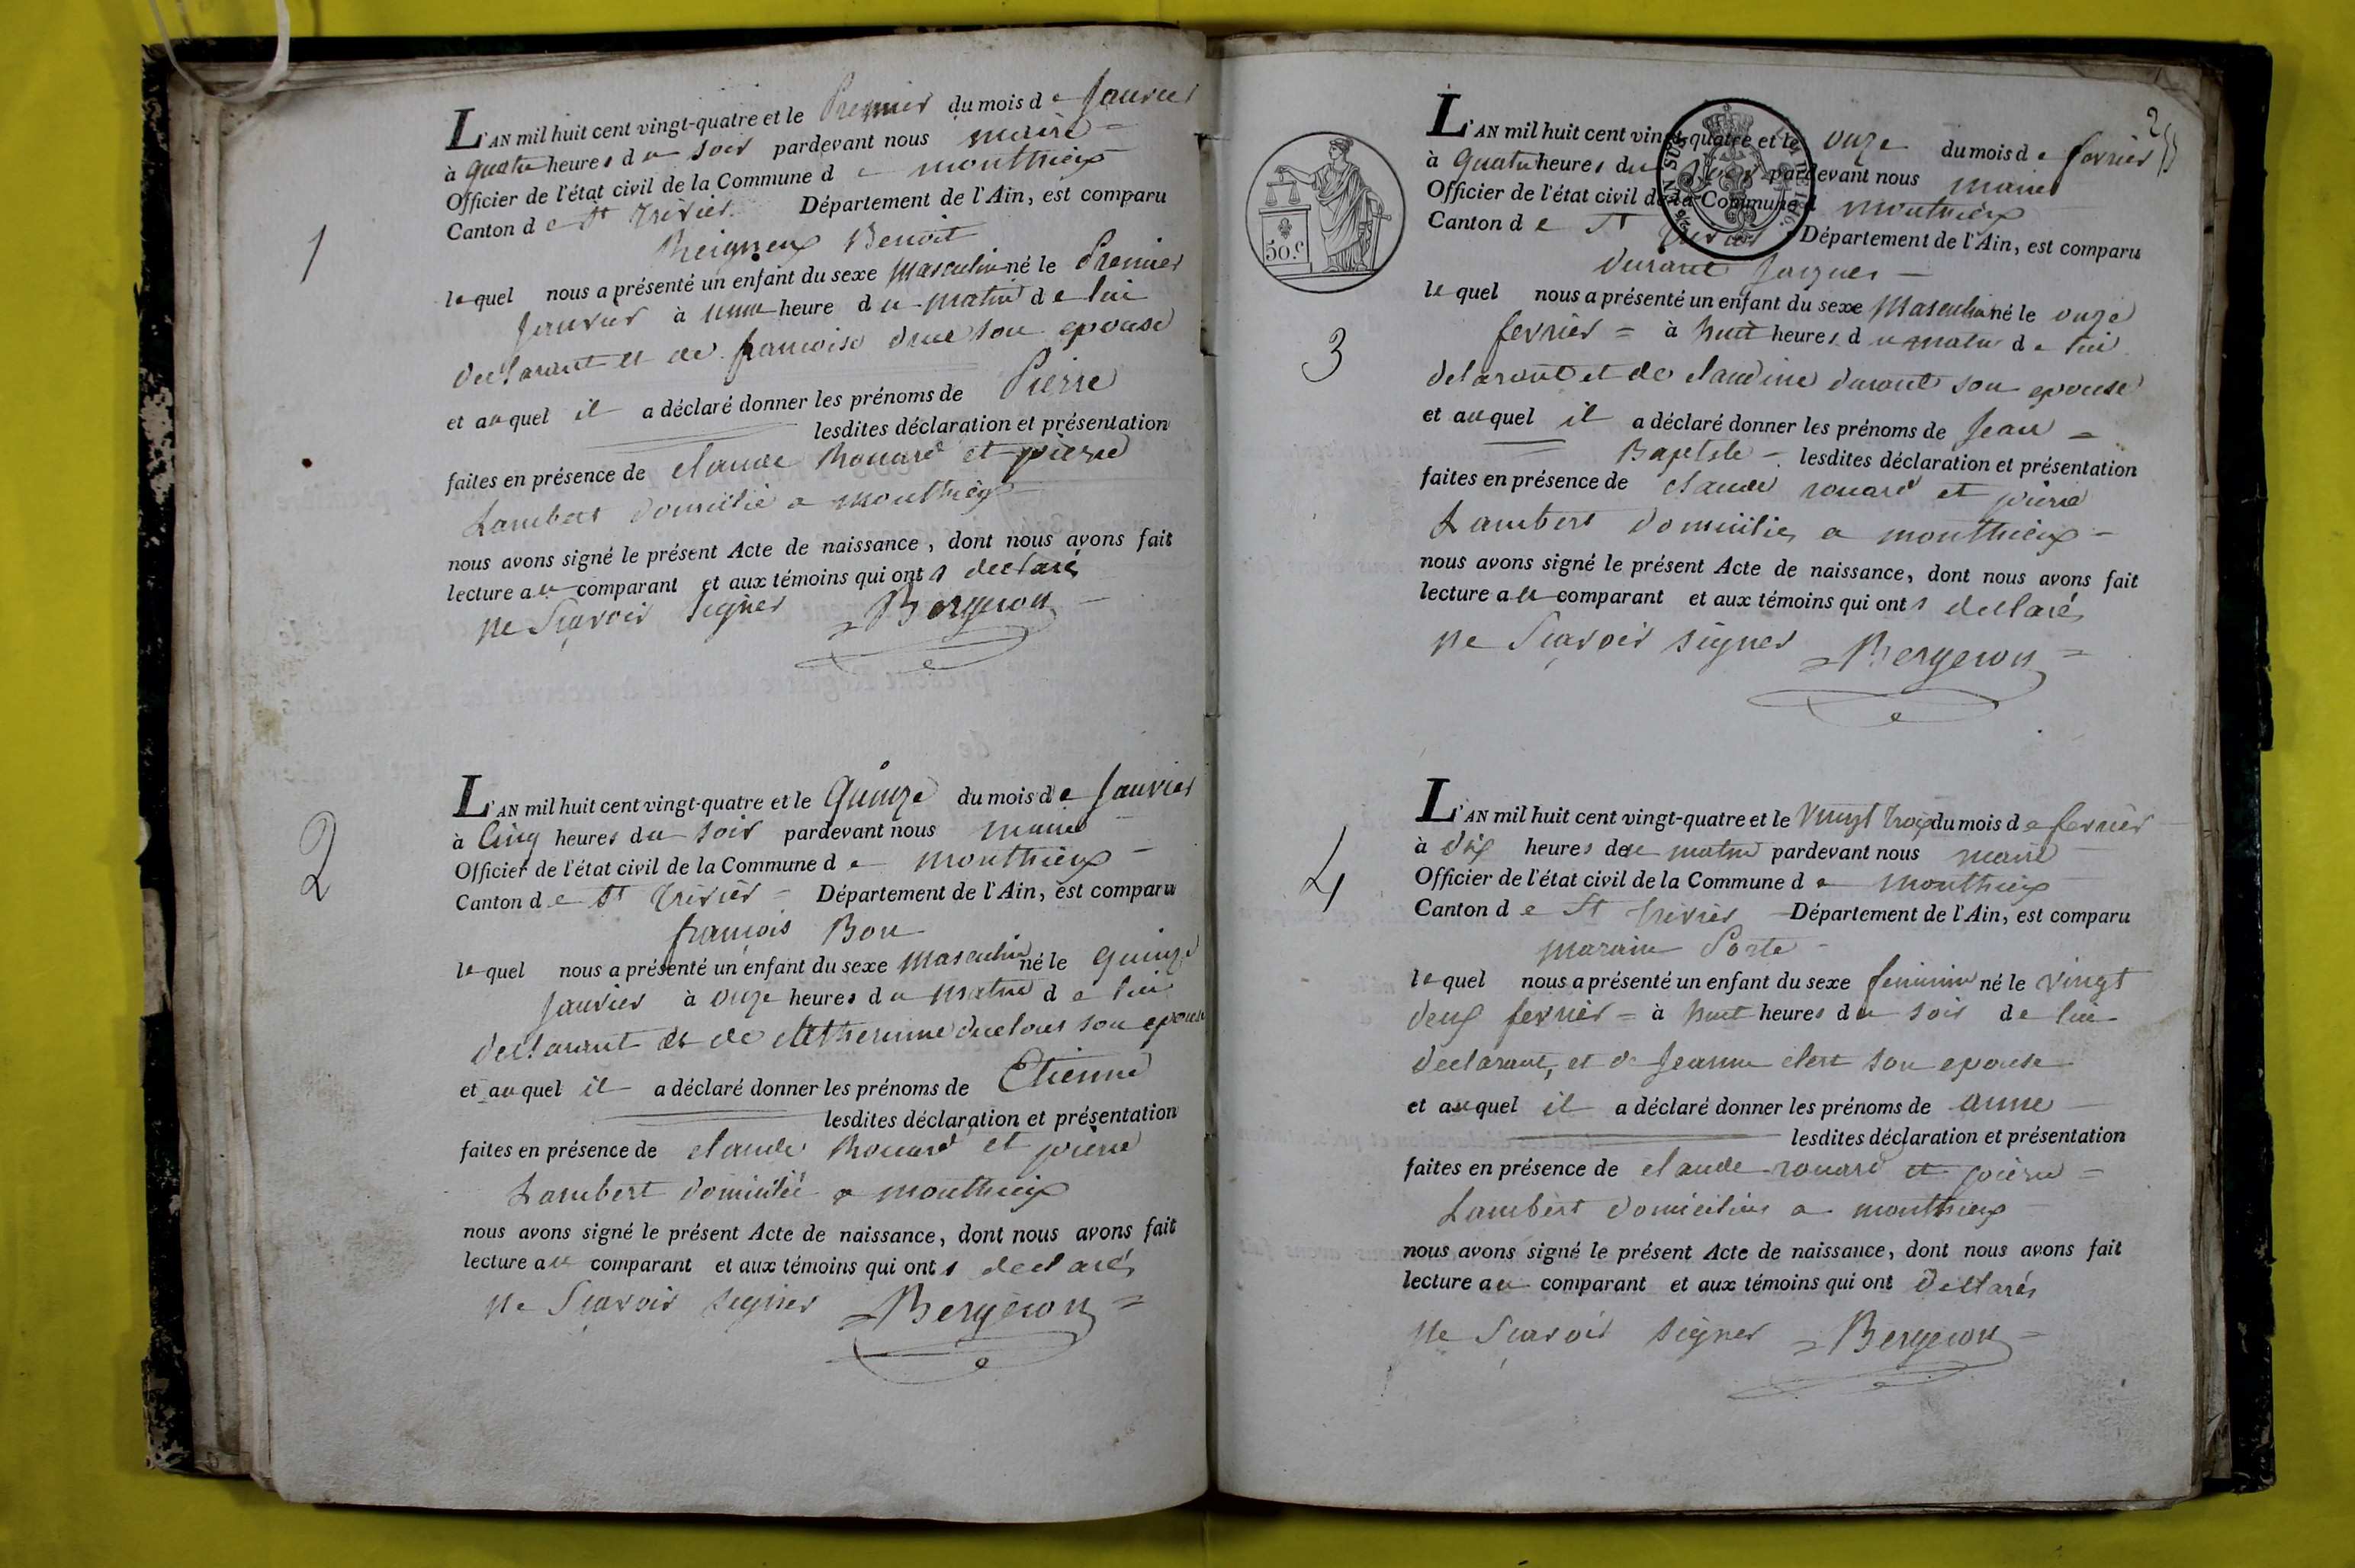 1
L'AN mil huit cent vingt-quatre et le Premier du mois de Janvier
à quatre heures du soir pardevant nous maire =
Officier de l'état civil de la Commune de monthieux
Canton de St trivier. Département de l'Ain, est comparu
Benoit
lequel nous a présenté un enfant du sexe masculin né le Premier
Janvier à une heure du matin de lui
declarant et de francoise son epouse
et auquel il a déclaré donner les prénoms de Pierre
lesdites déclaration et présentation
faites en présence de claude Rouard et pierre
Lambert domicilié a monthieux
nous avons signé le présent Acte de naissance, dont nous avons fait
lecture au comparant et aux témoins qui onts declarés
ne Sçavoir signer Bergeron
2
L'AN mil huit cent vingt-quatre et le Quinze du mois de Janvier
à Cinq heures du soir pardevant nous maire
Officier de l'état civil de la Commune de monthieux
Canton de St trivier = Département de l'Ain, est comparu
françois Bon
lequel nous a présenté un enfant du sexe masculin né le quinze
Janvier à onze heures du matin de lui
declarant et de son epouse
et auquel il a déclaré donner les prénoms de Etienne
lesdites déclaration et présentation
faites en présence de claude Rouard et pierre
Lambert domicilié a monthieux
nous avons signé le présent Acte de naissance, dont nous avons fait
lecture au comparant et aux témoins qui onts declarés
ne Sçavoir signer Bergeron =
2
50.c
3
L'AN mil huit cent vingt-quatre et le onze du mois de fevrier
à quatre heures du soir pardevant nous maire
Officier de l'état civil de la Commune d monthieux
Canton de St trivier Département de l'Ain, est comparu
durand Jacques
lequel nous a présenté un enfant du sexe masculin né le onze
fevrier = à huit heures du matin de lui
declarant et de claudine durand son epouse
et auquel il a déclaré donner les prénoms de Jean =
Baptiste - lesdites déclaration et présentation
faites en présence de claude rouard et pierre
Lambert domicilies a monthieux -
nous avons signé le présent Acte de naissance, dont nous avons fait
lecture au comparant et aux témoins qui onts declarés
ne Sçavoir signer Bergeron =
4
L'AN mil huit cent vingt-quatre et le vingt trois du mois de fevrier
à dix heures du matin pardevant nous maire
Officier de l'état civil de la Commune de monthieux
Canton de St trivier Département de l'Ain, est comparu
Porte
lequel nous a présenté un enfant du sexe feminin né le vingt
deux fevrier = à huit heures du soir de lui
declarant, et de Jeanne son epouse
et auquel il a déclaré donner les prénoms de anne
lesdites déclaration et présentation
faites en présence de claude rouard et pierre =
Lambert domicilies a monthieux
nous avons signé le présent Acte de naissance, dont nous avons fait
lecture au comparant et aux témoins qui ont declarés
ne Sçavoir signer Bergeron =